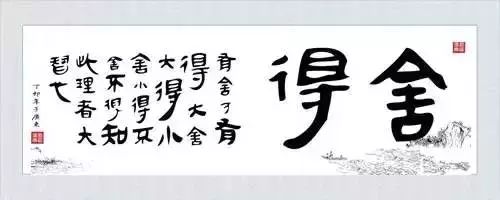 舍得
有舍乃有
得大舍
大得小
舍小得不
舍不得知
此理者大
智也
丁卯年于广东